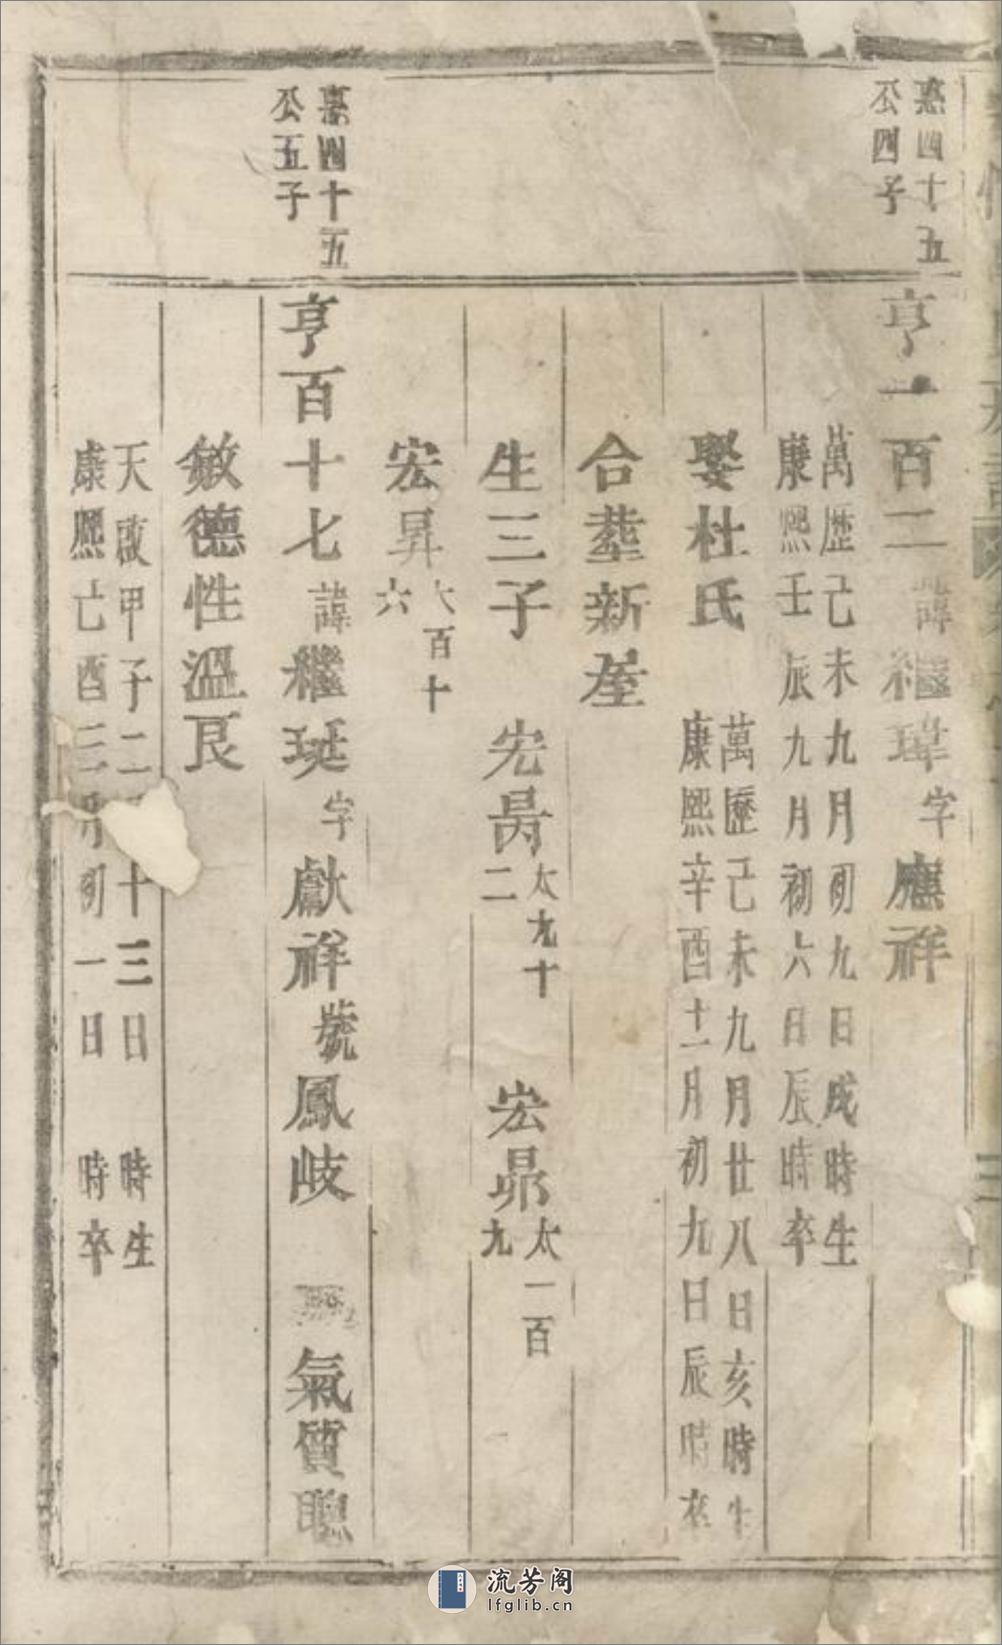 惪四十五
公四子
亨一百二 諱繼瑋字應祥
萬歷己未九月初九日戌時生
康熙壬辰九月初六日辰時卒
娶杜氏
萬歷己未九月廿八日亥時生
康熙辛酉十一月初九日辰時卒
合葬新屋
生三子 宏昺太九十二 宏昴太一百九
宏昇太百十六
惪四十五
公五子
亨百十七 諱繼珽字獻祥號鳳岐 氣質聰
敏德性溫良
天啟甲子二 十三日 時生
康熙己酉三月初一日 時卒
流芳阁
lfglib.cn